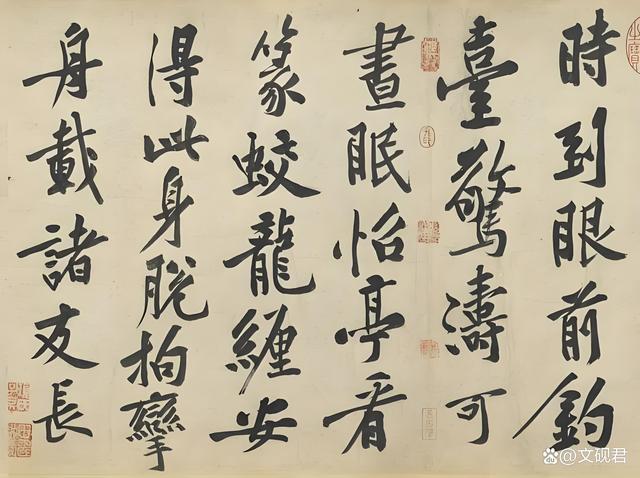 時到眼前釣
臺驚濤可
晝眠怡亭看
篆蛟龍纏安
得此身脫拘攣
舟載諸友長
文砚君